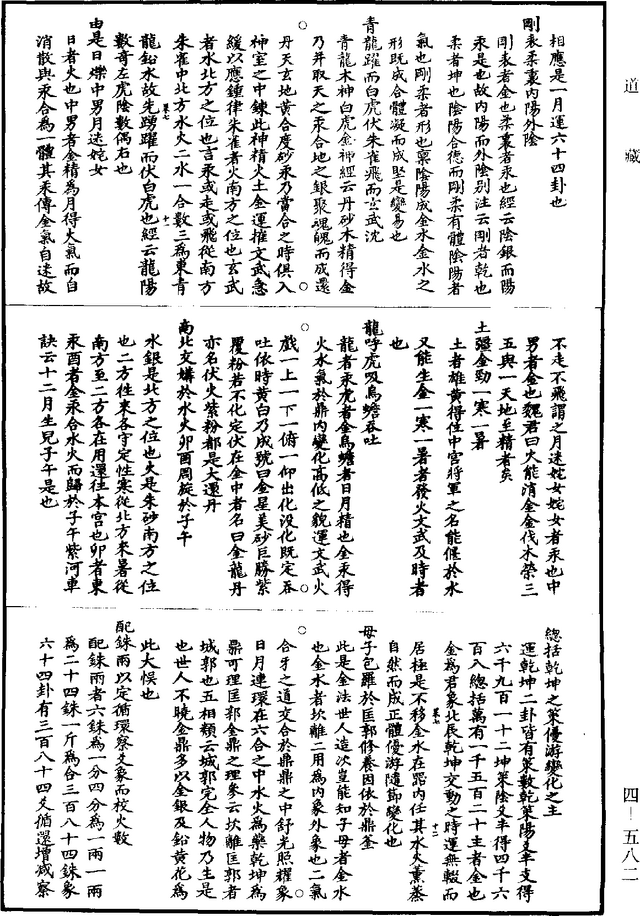 道藏
相應是一月運六十四卦也
剛表柔裏內陽外陰
剛表者金也柔裏者汞也經云陰銀而陽
汞是也故內陽而外陰別注云剛者乾也
柔者坤也陰陽合德而剛柔有體陰陽者
氣也剛柔者形也稟陰陽成金水金水之
形既成合體凝而成堅是變易也
青龍躍而白虎伏朱雀飛而玄武沈
青龍木神白虎金神經云丹砂木精得金
乃并取天之汞合地之銀聚魂魄而成還
丹天玄地黃合度砂汞乃當合之時俱入
神室之中鍊此神精火土金運推文武急
緩以應鍾律朱雀者火南方之位也玄武
者水北方之位也言汞或走或飛從南方
朱雀中北方水火二水一合數三為東青
龍鉛水故先踴躍而伏白虎也經云龍陽
數奇左虎陰數偶右也
由是日爍中男月迷姹女
日者火也中男者金精為月得火氣而白
消散與汞合為一體其汞傳金氣自迷故
卷七
十一
不走不飛謂之月迷姹女姹女者汞也中
男者金也魏君曰火能消金金伐木榮三
五與一天地至精者矣
土彊金勁一寒一暑
土者雄黃得位中宮將軍之名能偃於水
又能生金一寒一暑者發火文武及時者
也
龍呼虎吸烏蟾吞吐
龍者汞虎者金烏蟾者日月精也金汞得
火水氣於鼎內變化高低之貌運文武火
戲一上一下一俯一仰出化沒化既定吞
吐依時黃白乃成號曰金星美砂巨勝紫
覆粉若不化定伏在金中者名曰金龍丹
亦名伏火紫粉都是大還丹
南北交媾於水火卯酉周旋於子午
水銀是北方之位也火是朱砂南方之位
也二方往來各守定性寒從北方來暑從
南方至二方各在用還往本宮也卯者東
汞酉者金汞合水火而歸於子午紫河車
訣云十二月生兒子午是也
總括乾坤之策優游變化之主
運乾坤二卦皆有策數乾策陽爻率支得
六千九百一十二坤策陰爻率得四千六
百八總括萬有一千五百二十主者金也
金為君象北辰乾坤交動之時運無輟而
居極是不移金水在器內任其水火薰蒸
自然而成正體優游隨節變化也
母子包羅於匡郭修養因依於鼎釜
此是金法世人造次豈能知子母者金水
也金水者坎離二用為內象外象也二氣
合牙之道交合於鼎鼎之中舒光照耀象
日月連環在六合之中水火為藥乾坤為
鼎可理匡郭金鼎之理參云坎離匡郭者
城郭也五相類云城郭完全人物乃生是
也世人不曉金鼎多以金銀及鉛黃花為
此大悞也
配銖兩以定循環察爻象而校火數
配銖兩者六銖為一分四分為一兩一兩
為二十四銖一斤為合三百八十四銖象
六十四卦有三百八十四爻循還增減察
卷七
十二
四—五八二